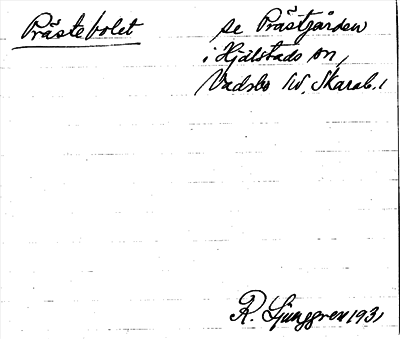 Prästebolet
se Prästgården
i Hjälstads sn,
Vadsbo hd, Skarab. l
R. Ljunggren 1931